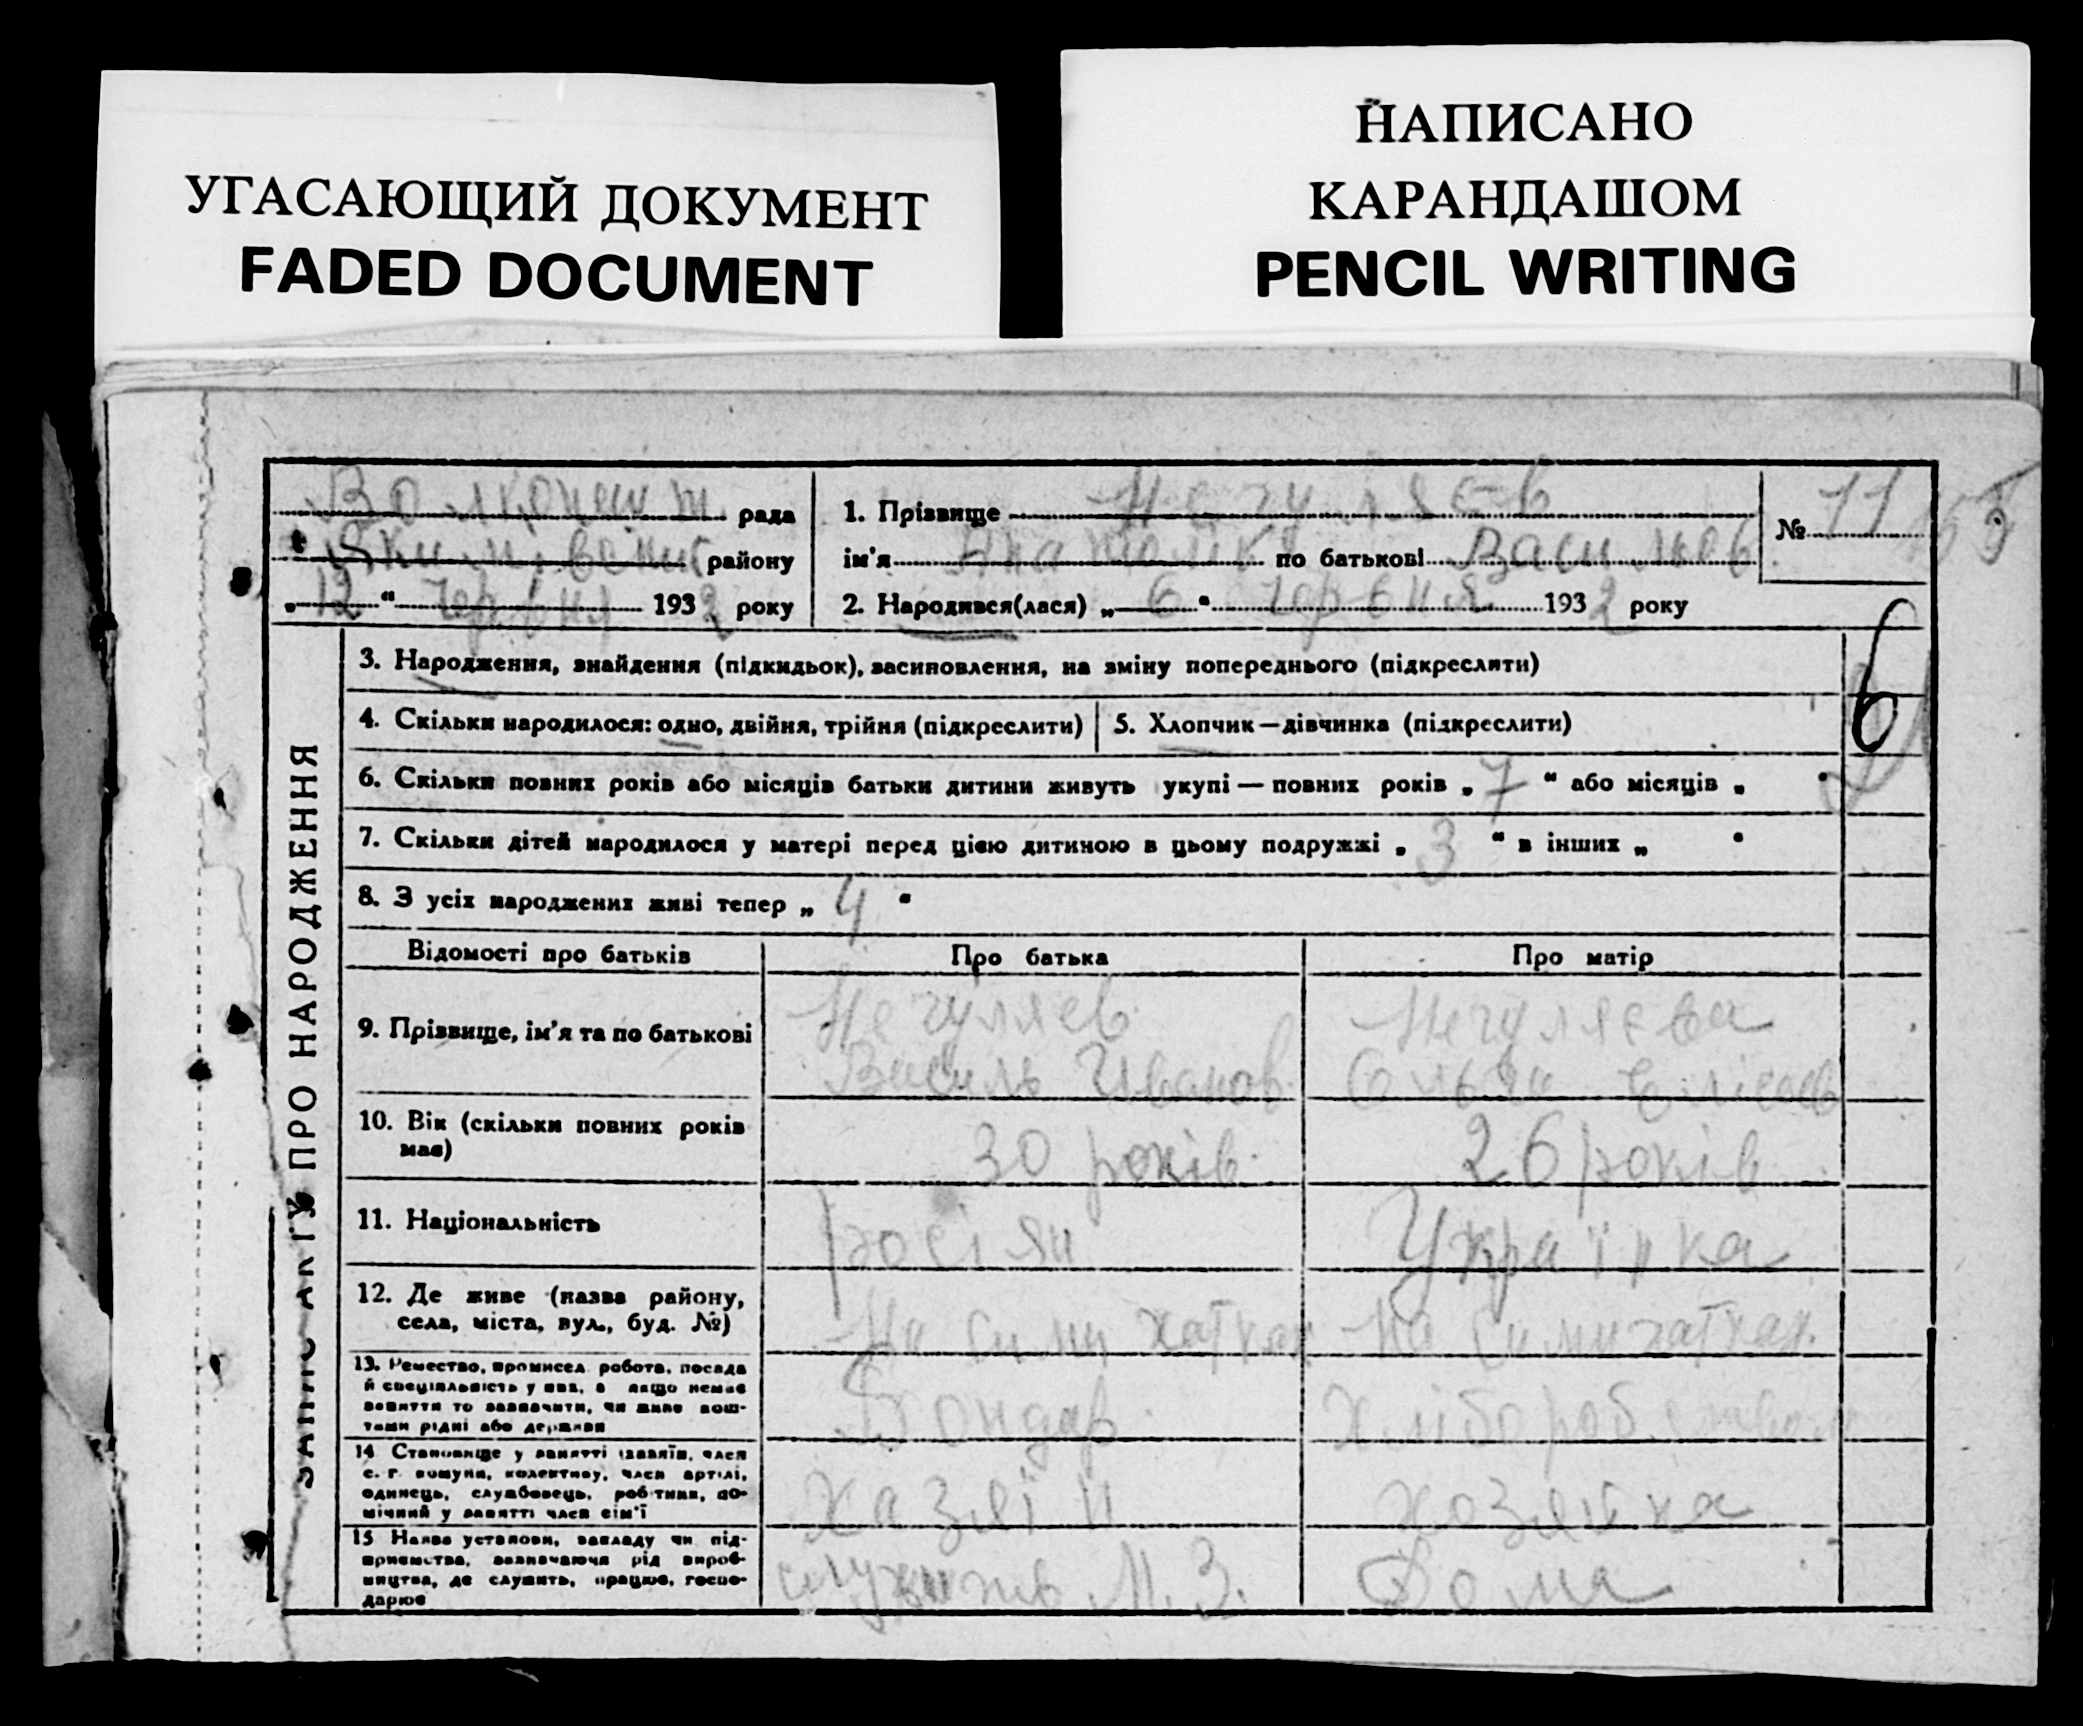 УГАСАЮЩИЙ ДОКУМЕНТ
FADED DOCUMENT
НАПИСАНО
КАРАНДАШОМ
PENCIL WRITING
Волконешт рада
району
„12“ червня 1932 року
1. Прізвище Нечуляєв
ім'я по батькові Васильов
2. Народився(лася) „6“ червня 1932 року
№ 11
6
ЗАПИС АКТУ ПРО НАРОДЖЕННЯ
3. Народження, знайдення (підкидьок), засиновлення, на зміну попереднього (підкреслити)
4. Скільки народилося: одно, двійня, трійня (підкреслити)
5. Хлопчик — дівчинка (підкреслити)
6. Скільки повних років або місяців батьки дитини живуть укупі — повних років „7“ або місяців „ “
7. Скільки дітей народилося у матері перед цією дитиною в цьому подружжі „3“ в інших „ “
8. З усіх народжених живі тепер „4“
Відомості про батьків
Про батька
Про матір
9. Прізвище, ім'я та по батькові
Нечуляев
Василь Иванов
Нечуляєва
Ольга Елісаев
10. Вік (скільки повних років
має)
30 років
26 років
11. Національність
росіян
Українка
12. Де живе (назва району,
села, міста, вул., буд. №)
На сими хатках
На сими хатках
13. Ремество, промисел, робота, посада
й спеціяльність у них, а якщо немає
заняття то зазначити, чи живе кош-
тами рідні або держави
Бондар
Хлібороб
14 Становище у занятті (хазяїн, член
с. г. комуни, колективу, член артілі,
одинець, службовець, робітник, по-
мічний у занятті член сім'ї
Хазяїн
хозяйка
15 Назва установи, закладу чи під-
приємства, зазначаючи рід вироб-
ництва, де служить, працює, госпо-
дарює
служить М. З.
Дома